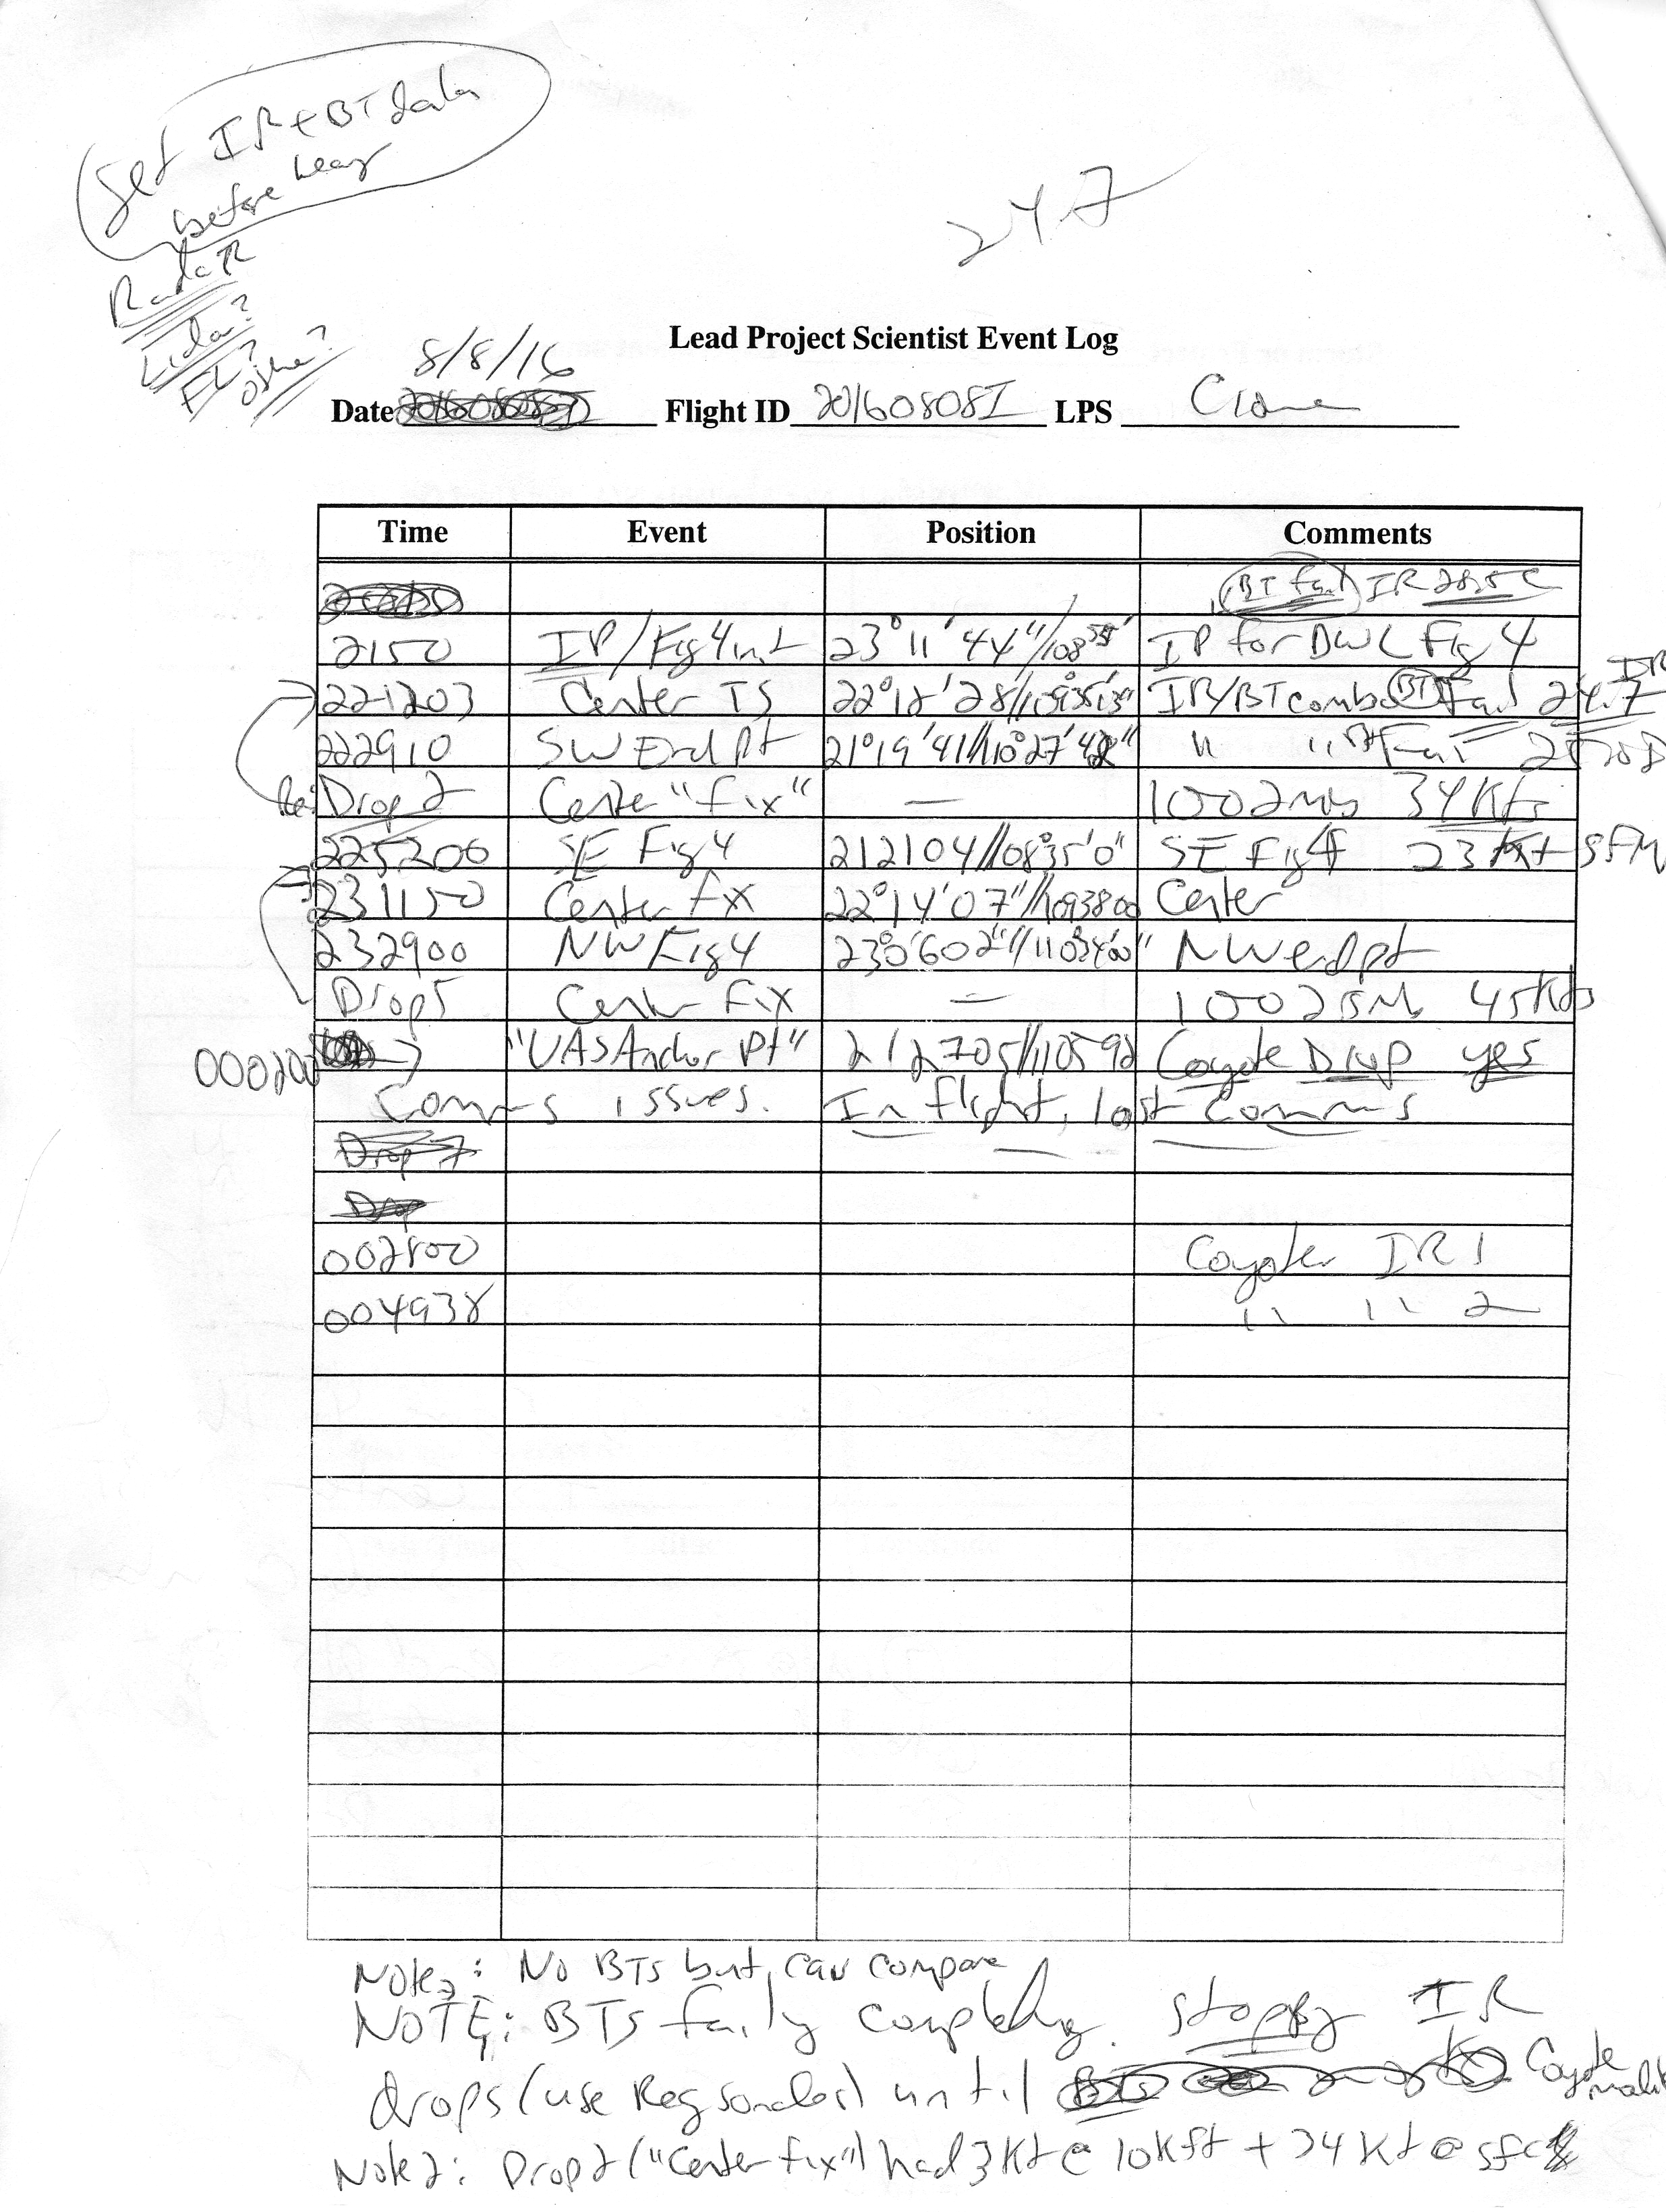 Get IR + BT data
before
Radar
Lidar?
FL?
Other?
247
Lead Project Scientist Event Log
8/8/16
Date Flight ID 20160808I LPS Cione
Time Event Position Comments
BT fail IR 28.5C
2150 IP/Fig 4 init 23° 11' 44"/108 IP for DWL Fig 4
221203 Center TS 22°12'28/ IR/BT combo BT Fail 24.7 IR
222910 SW End Pt 21°19'41//110°27'42" " " BT Fail
Re: Drop 2 Center "fix" — 1002mb 34 Kts
225200 SE Fig 4 212104//108°35'0" SE Fig 4 23 Kt SFM
231150 Center Fix 22°14'07"//1093800 Center
232900 NW Fig 4 NW endpt
Drop 5 Center Fix — 1002 45 Kts
000200 "UAS Anchor Pt" 212705//110592 Coyote Drop yes
Comms issues. In flight, lost comms
Drop 7
Drop
002800 Coyote IR 1
004938 " " 2
Note: No BTs but can compare
NOTE: BTs failing completely. Stopping IR
drops (use Reg sondes) until Coyote
Note 2: Drop 2 ("Center fix") had 3 Kt @ 10kft + 34 Kt @ sfc